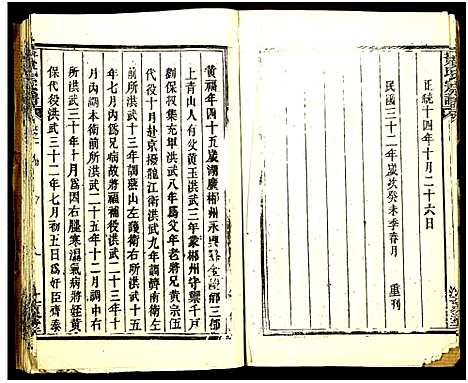 正統十四年十月二十六日
民國三十二年歲次癸未季春月 重刊
黃福年四十五歲湖廣郴州永興縣金陵鄉三都
上青山人有父黃玉洪武三年蒙郴州守禦千戶
保叔集充軍洪武八年為父年老將兄黃宗伍
代役十月赴京撥龍江衛洪武九年調濟南衛左
前所洪武十三年調密山左護衛右所洪武十五
年七月內為兄病故將福補役洪武二十三年十
月內調本衛前所洪武二十五年十二月調中右
所洪武三十年十月為因右腿寒濕氣病將姪黃
保代役洪武三十二年七月初五日為奸臣齊泰